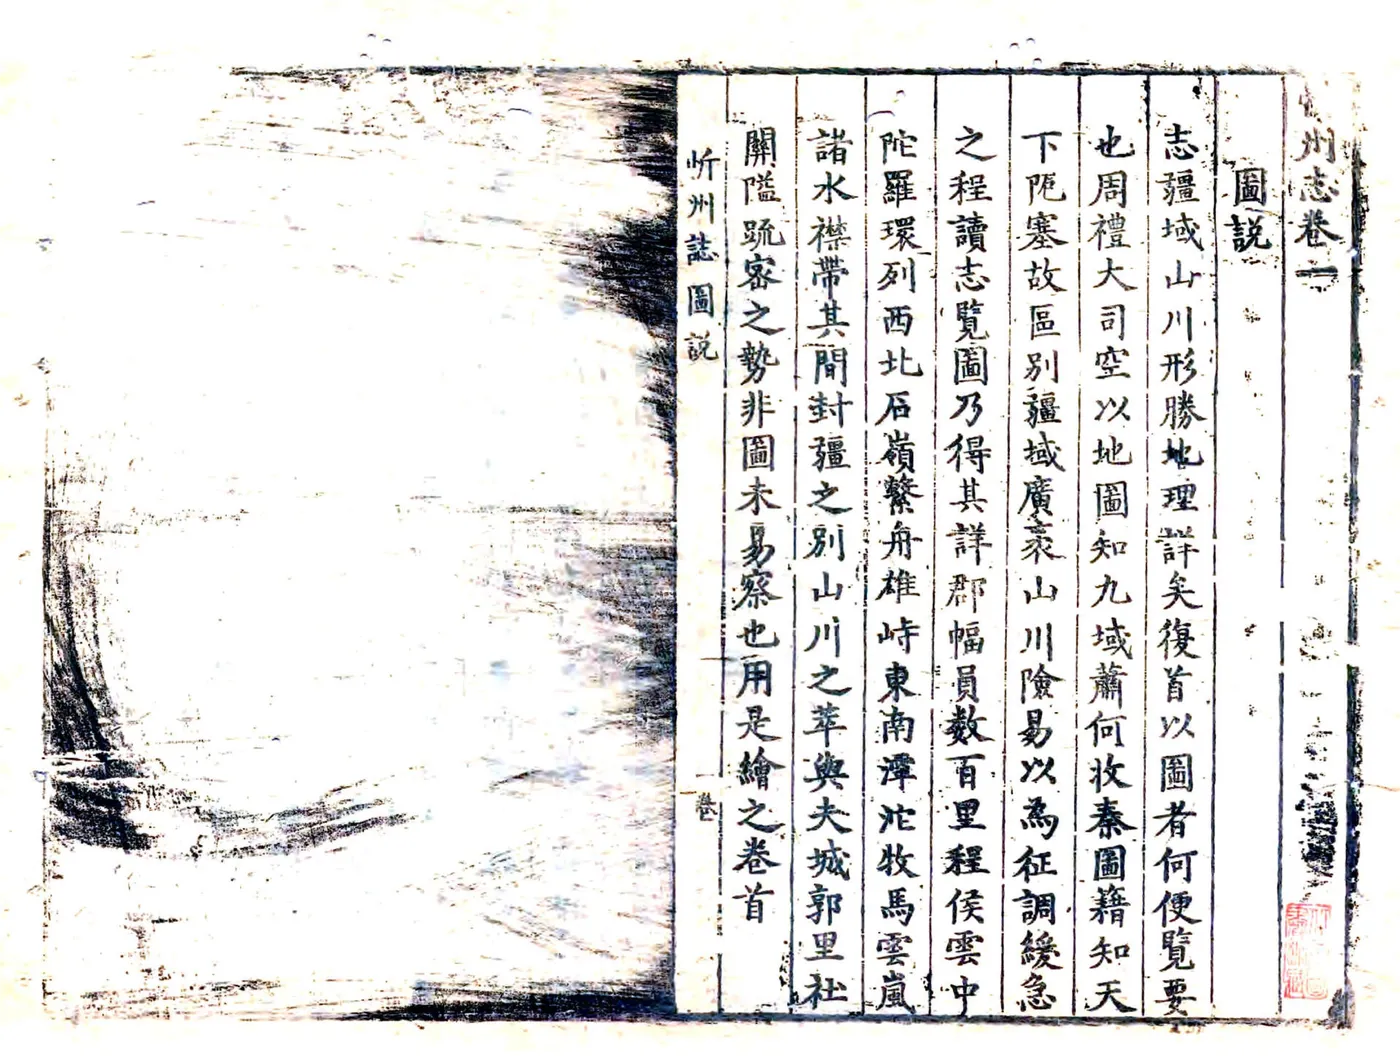 州志卷一
圖說
志疆域山川形勝地理詳矣復首以圖者何便覽要
也周禮大司空以地圖知九域蕭何收秦圖籍知天
下阨塞故區別疆域廣袤山川險易以為征調緩急
之程讀志覽圖乃得其詳郡幅員数百里程侯雲中
陀羅環列西北石嶺繫舟雄峙東南潭沱牧馬雲嵐
諸水襟帶其間封疆之別山川之萃與夫城郭里社
關隘疏密之勢非圖未易察也用是繪之卷首
忻州誌圖說
卷